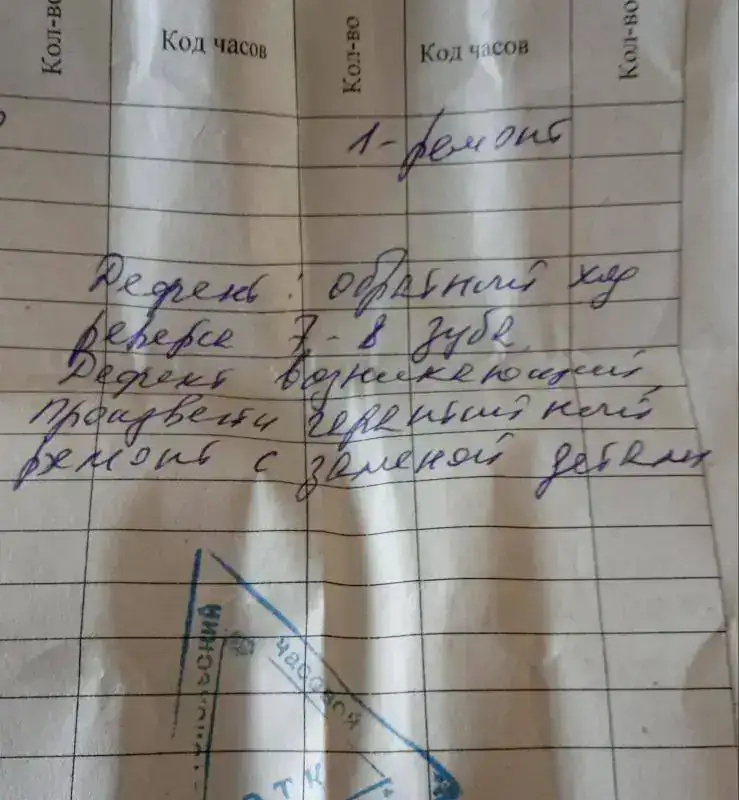 Кол-во Код часов Кол-во Код часов Кол-во
1-ремонт
Дефект: обратный ход
реверса 7-8 зуба
Дефект возникающий
Произвести гарантийный
ремонт с заменой детали
часовой
ОТК